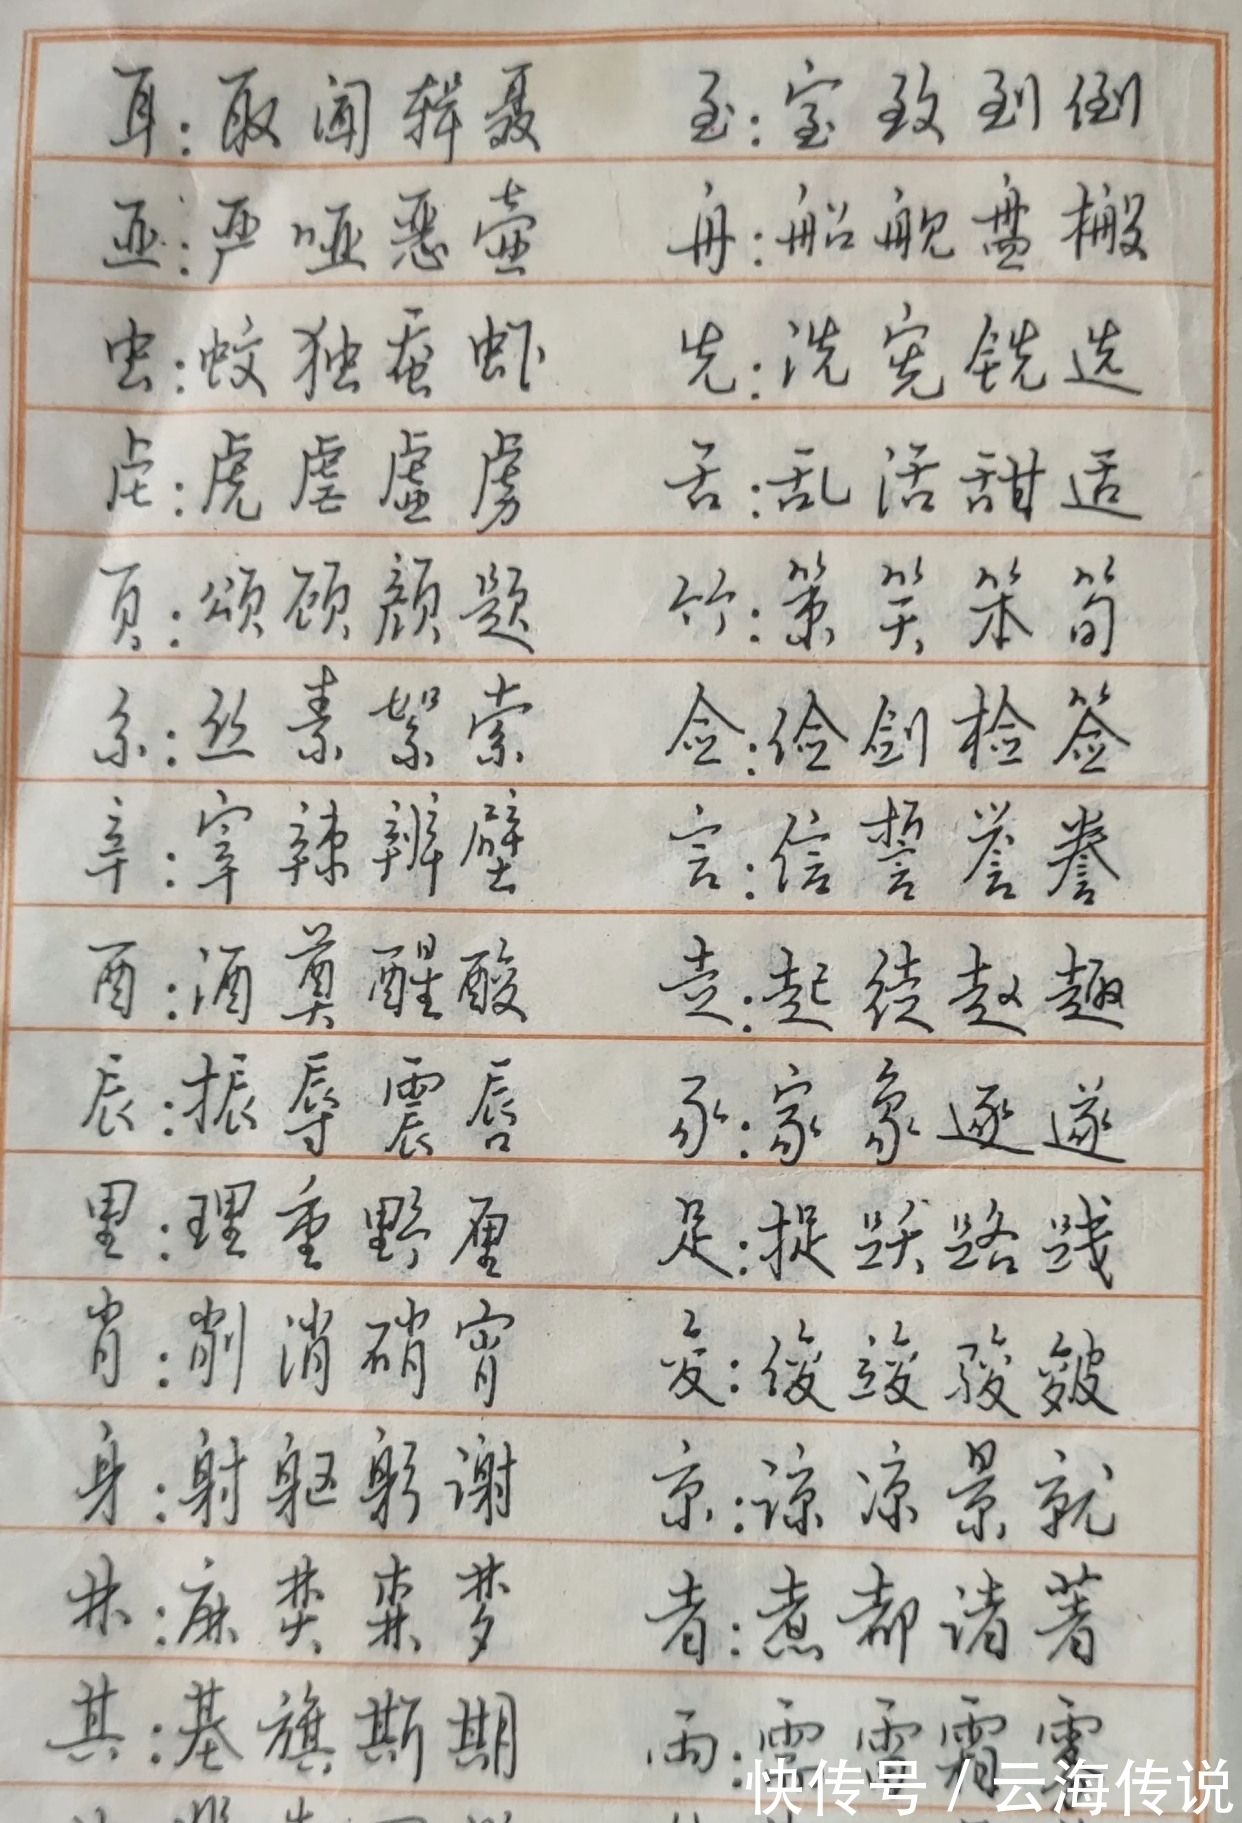 耳：取闻辑聂 至：室致到倒
亚：严哑恶壶 舟：船舰盘搬
虫：蚊独蚕虾 先：洗宪铣选
虎虐虚虏 舌：乱活甜适
页：颂顾颜题 竹：策笑笨筍
糸：丝素絮索 佥：俭剑检签
辛：宰辣辨壁 言：信誓誉誊
酉：酒奠醒酸 走：起徒赵趣
辰：振辱震唇 豕：家象逐遂
里：理重野厘 足：捉跃路践
肖：削消硝宵 夋：俊竣骏皴
身：射躯躬谢 京：谅凉景就
林：麻焚森梦 者：煮都诸著
其：基旗斯期 雨：雪雷霜
快传号 / 云海传说